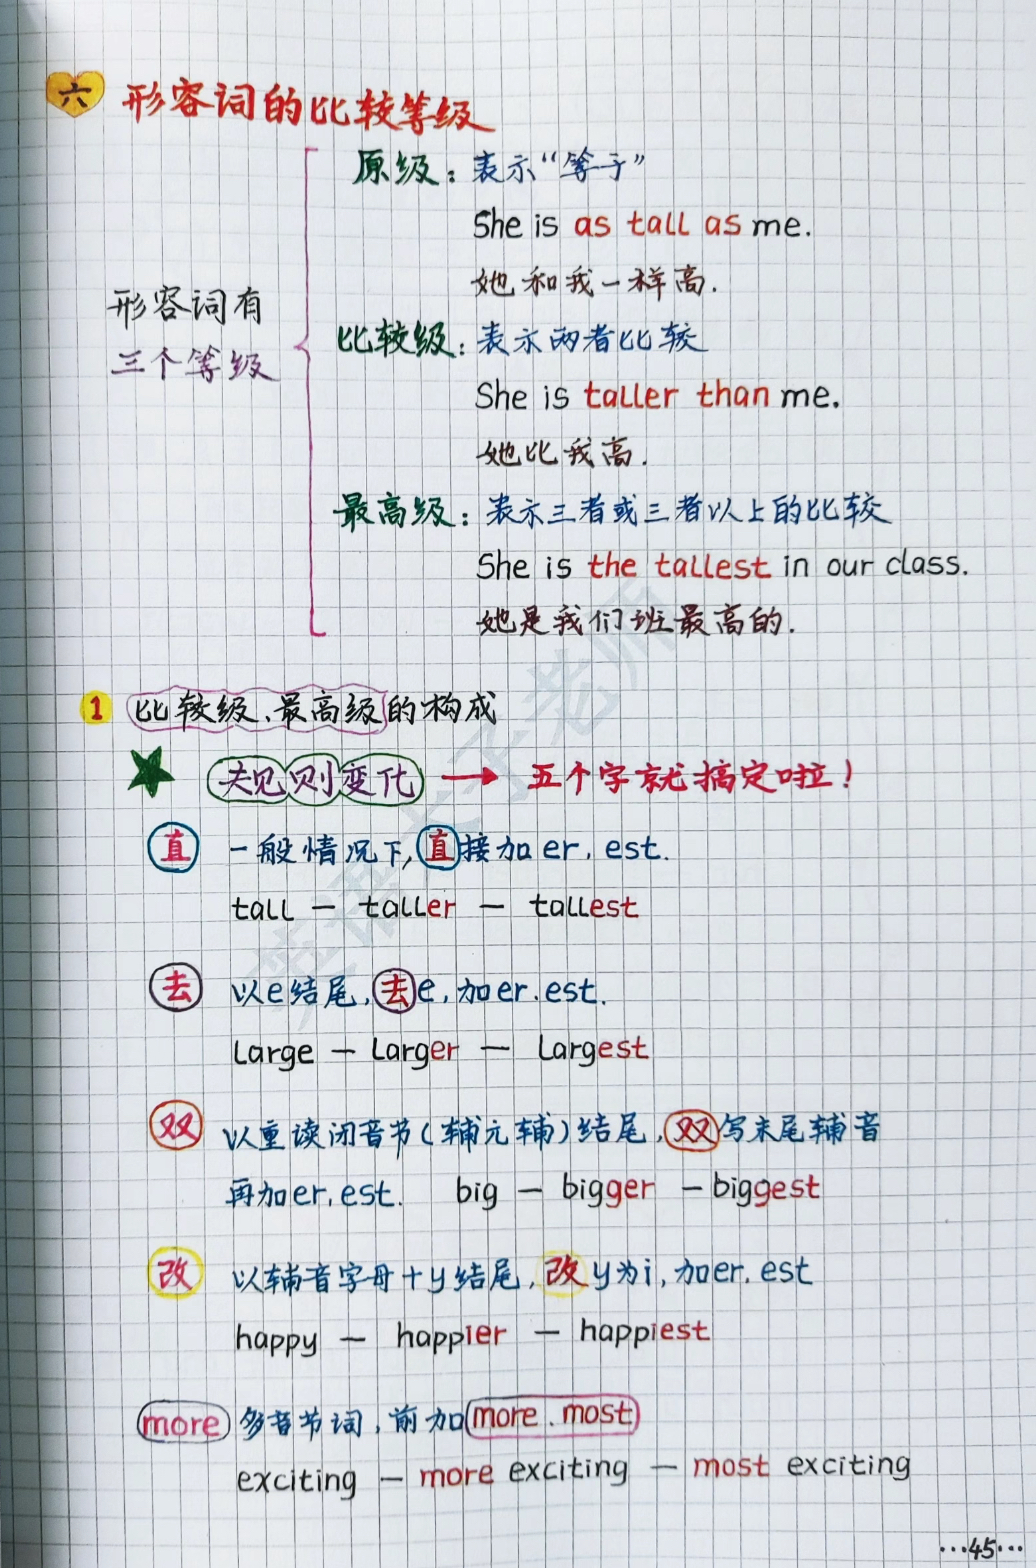 六 形容词的比较等级
原级：表示“等于”
She is as tall as me.
她和我一样高.
形容词有
三个等级
比较级：表示两者比较
She is taller than me.
她比我高.
最高级：表示三者或三者以上的比较
She is the tallest in our class.
她是我们班最高的.
1 比较级、最高级的构成
规则变化 → 五个字就搞定啦！
直 一般情况下,直接加er, est.
tall — taller — tallest
去 以e结尾,去e,加er.est.
large — larger — largest
双 以重读闭音节(辅元辅)结尾,双写末尾辅音
再加er,est. big — bigger — biggest
改 以辅音字母+y结尾,改y为i,加er,est
happy — happier — happiest
more 多音节词,前加more、most
exciting — more exciting — most exciting
英语夫子老师
···45···